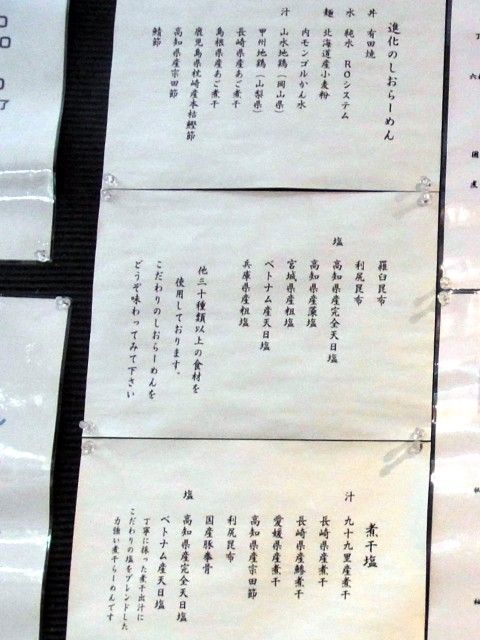 進化のしおらーめん
丼 有田焼
水 純水 ROシステム
麺 北海道産小麦粉
内モンゴルかん水
汁 山水地鶏(岡山県)
甲州地鶏(山梨県)
長崎県産あご煮干
島根県産あご煮干
鹿児島県枕崎産本枯鰹節
高知県産宗田節
鯖節
羅臼昆布
利尻昆布
塩 高知県産完全天日塩
高知県産藻塩
宮城県産粗塩
ベトナム産天日塩
兵庫県産粗塩
他三十種類以上の食材を
使用しております。
こだわりのしおらーめんを
どうぞ味わってみて下さい
煮干塩
汁 九十九里産煮干
長崎県産煮干
長崎県産鯵煮干
愛媛県産煮干
高知県産宗田節
利尻昆布
国産豚拳骨
塩 高知県産完全天日塩
ベトナム産天日塩
丁寧に採った煮干出汁に
こだわりの塩をブレンドした
力強い煮干らーめんです